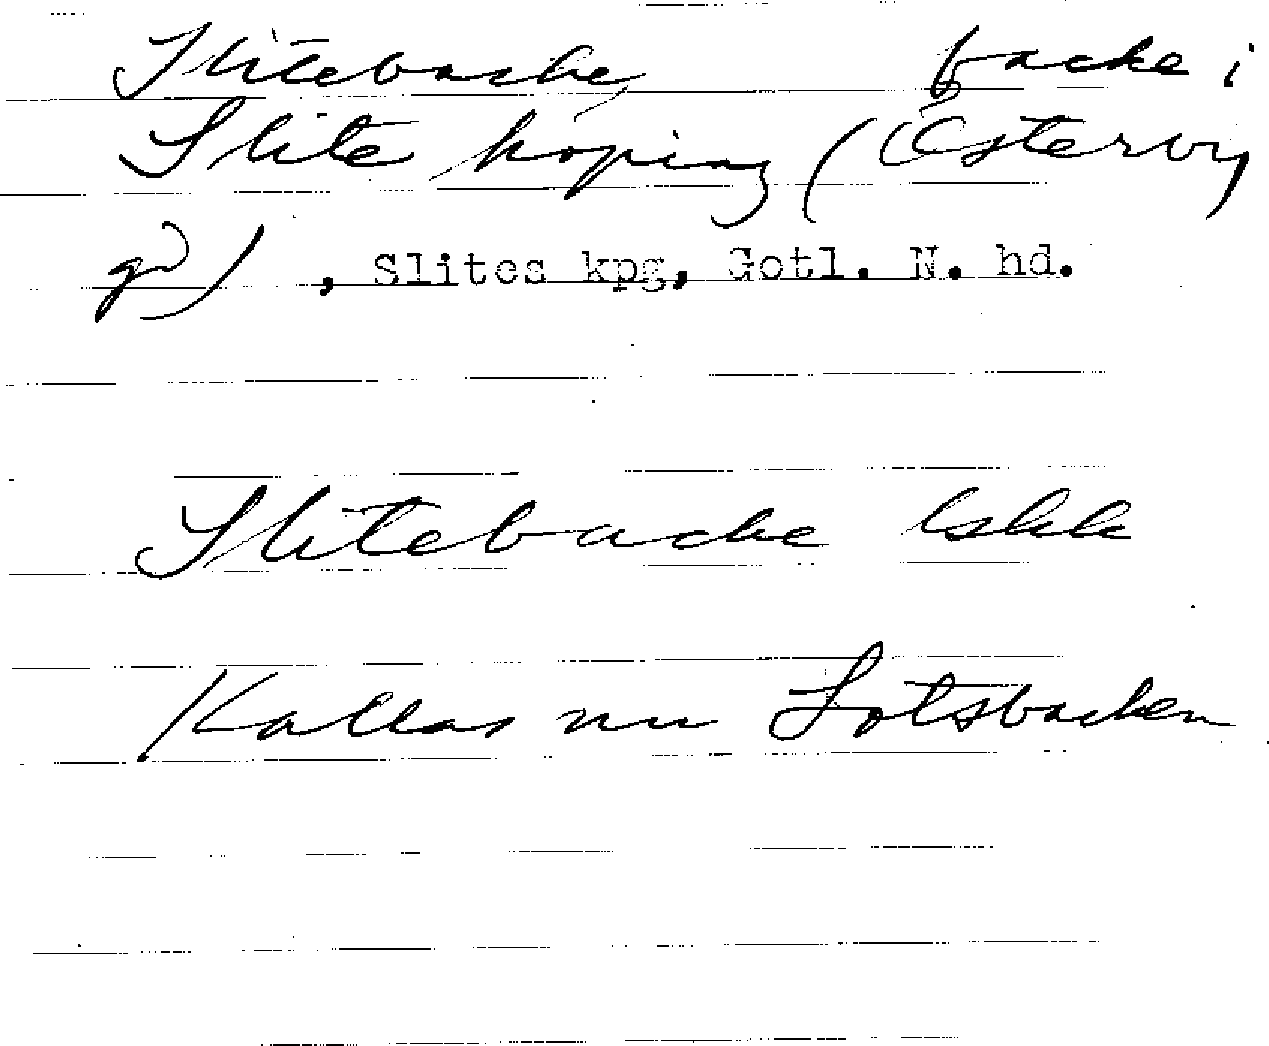 Slitebacke, backe i
Slite köping (Österby
gd) , Slites kpg, Gotl. N. hd.
Slitebacke lskk
Kallas nu Lotsbacken